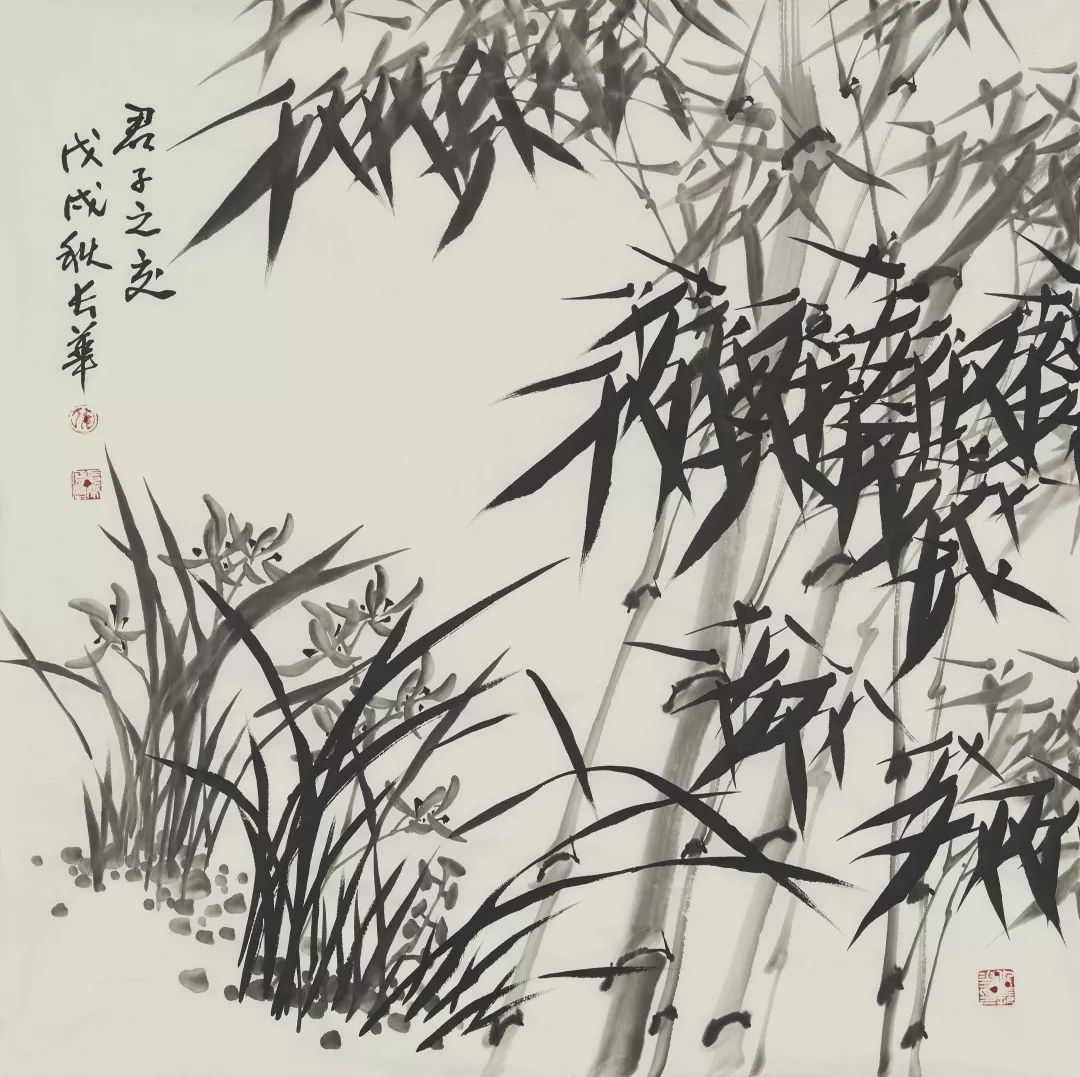 君子之交
戊戌秋长華